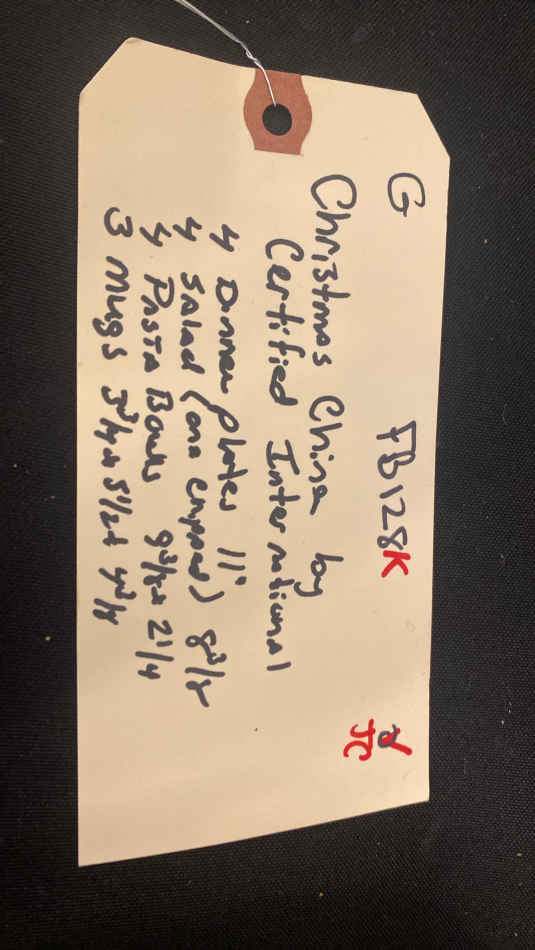 G FB128K
JC
Christmas China by
Certified International
4 Dinner plates 11"
4 Salad (one chipped) 8 3/8
4 Pasta Bowls 9 3/8 x 2 1/4
3 Mugs x 5 1/2 x